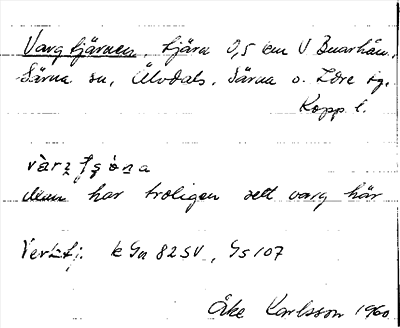 Vargtjärnen, tjärn 0,5 km V Buarhån,
Särna sn, Älvdals, Särna o. Idre tg,
Kopp. l.
man har troligen sett varg här
kGn 82SV, Gs 107
Åke Karlsson 1960